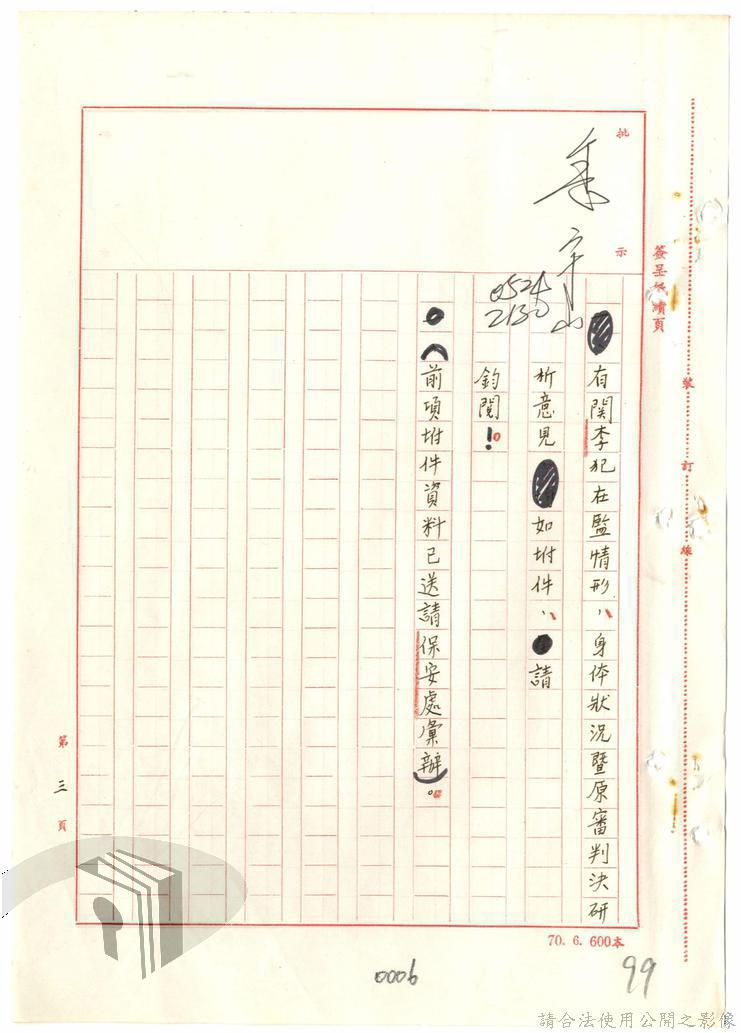 簽呈紙續頁
裝訂線
批示
0524
2130
有関李犯在監情形,身体狀况暨原審判决研
析意見如坿件,請
鈞閱!
前項坿件資料已送請保安處彙辦。
第三頁
70. 6. 600本
0006
99
請合法使用公開之影像